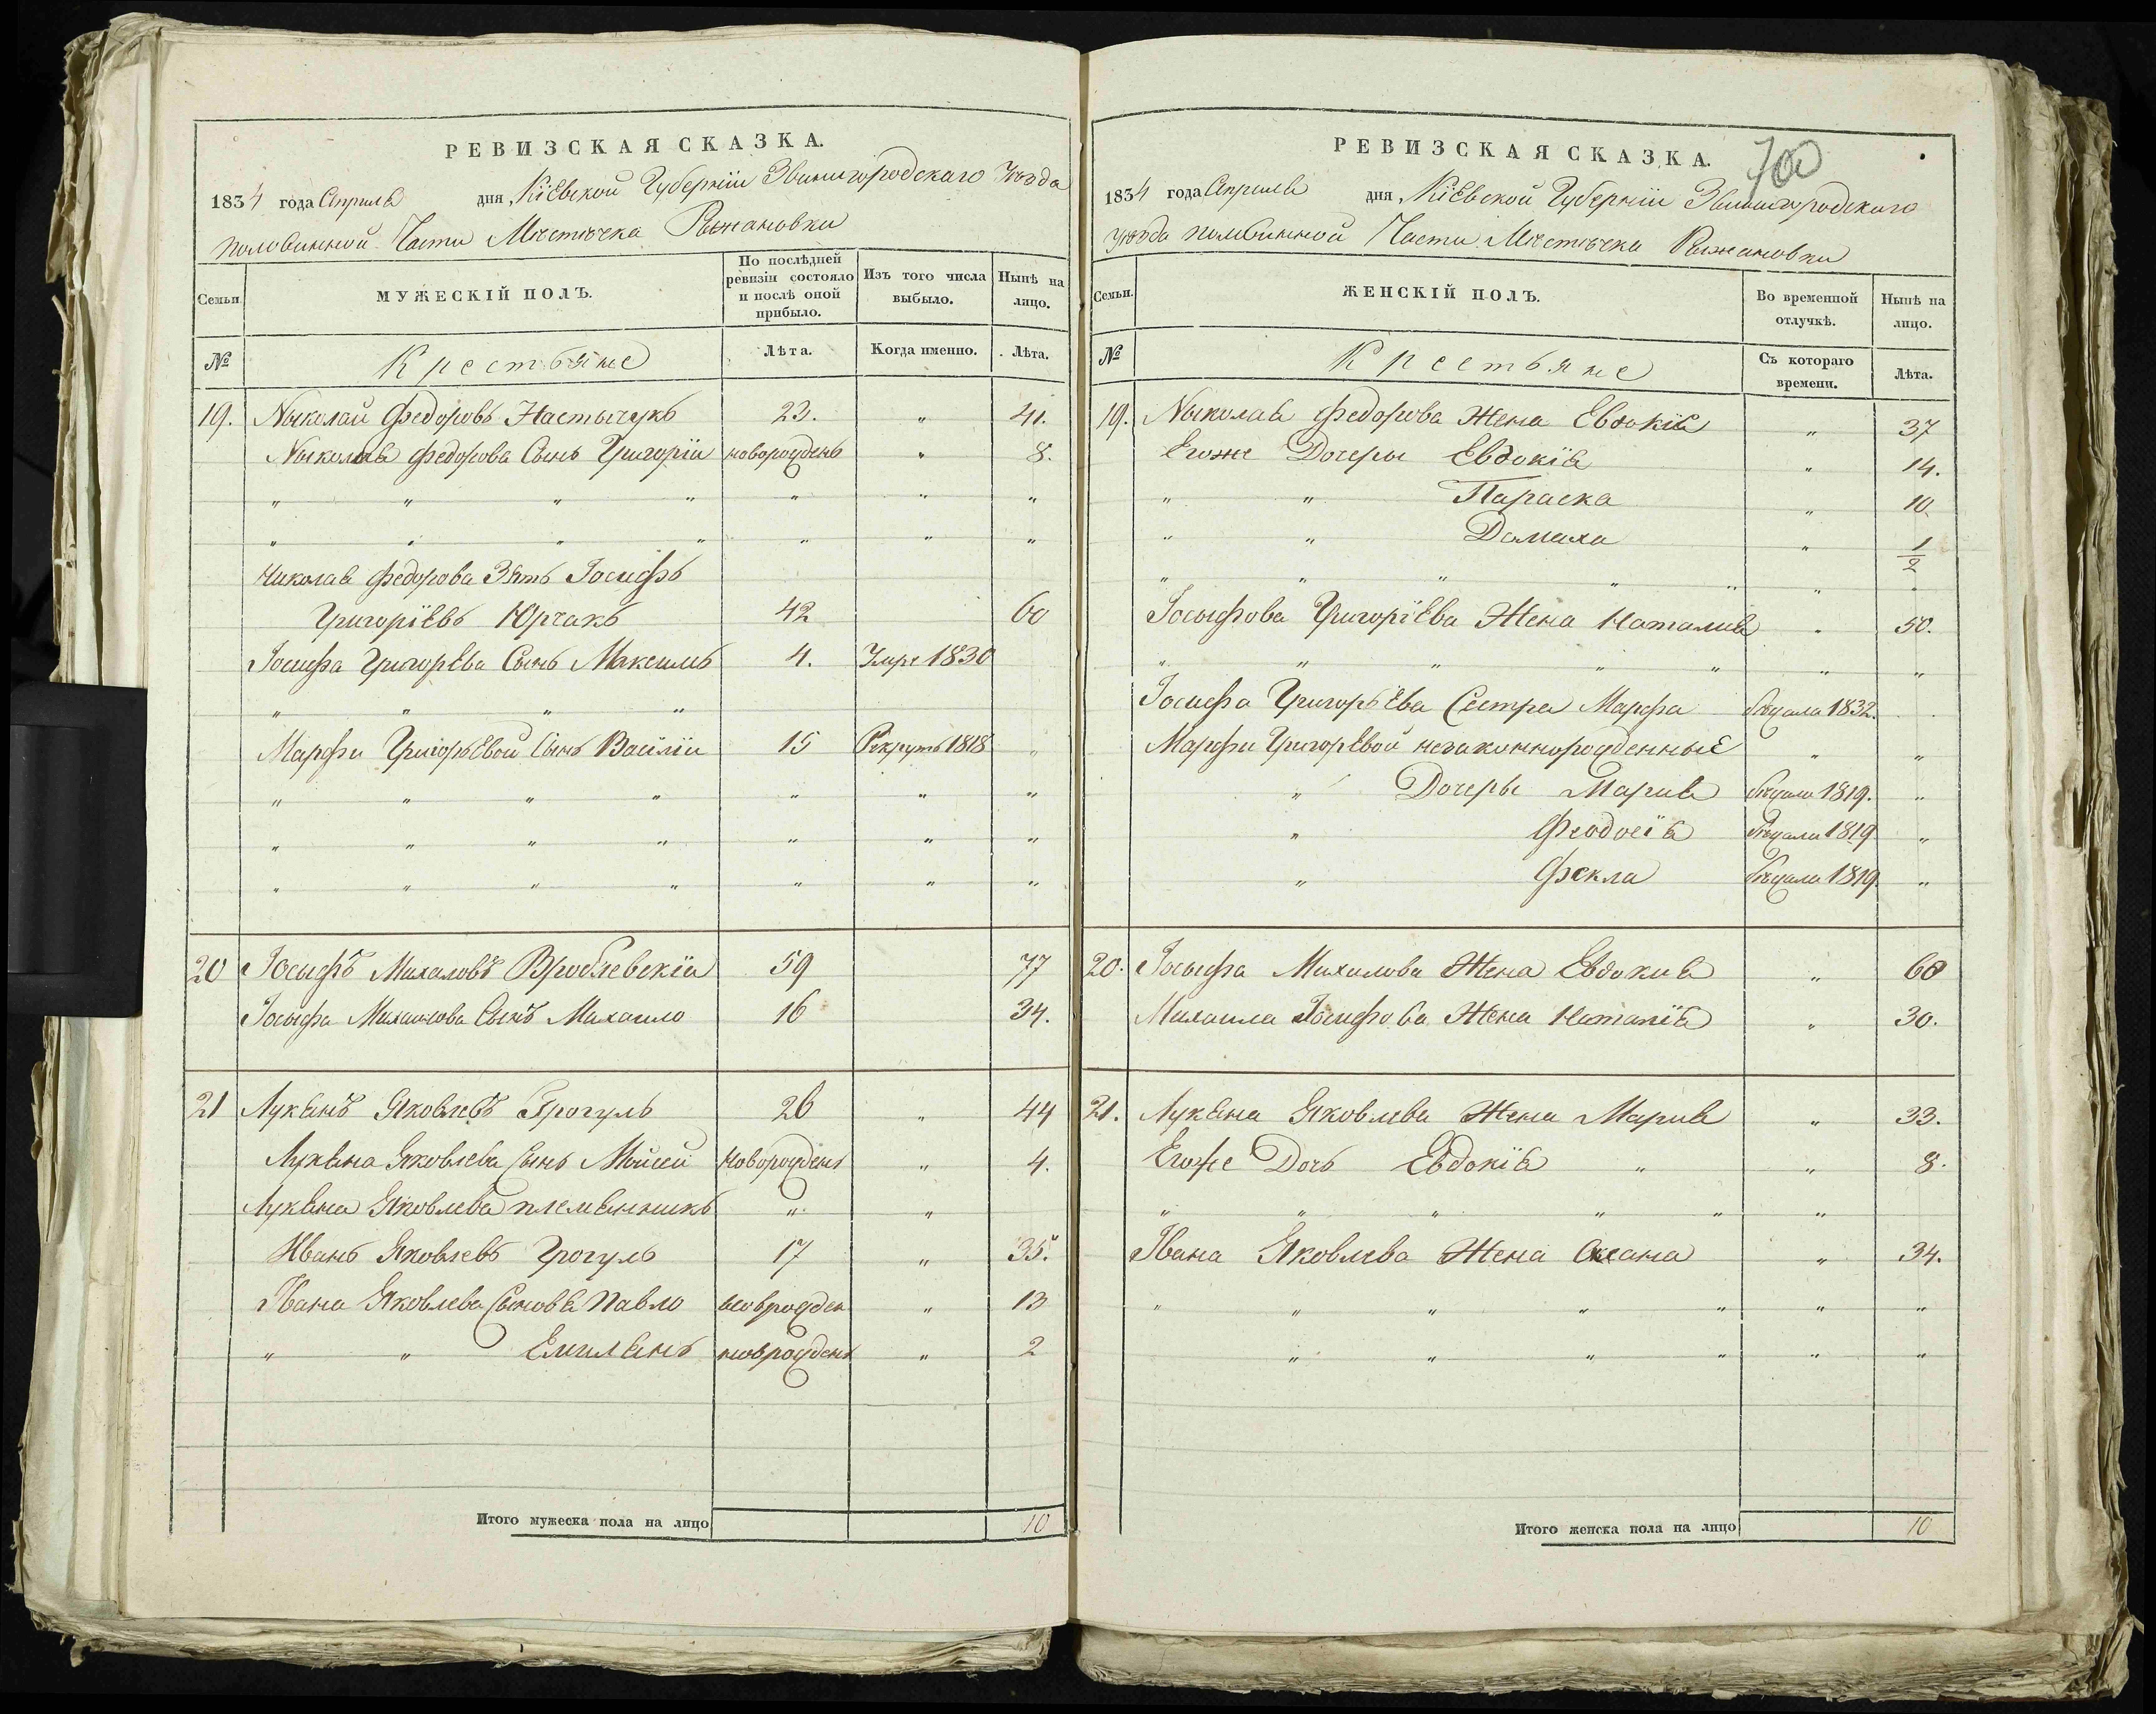 РЕВИЗСКАЯ СКАЗКА.
1834 года Апреля дня Кіевской Губерніи Звинигородскаго Уѣзда
половинной Части Мѣстѣчка Рыжановки
Семьи.
МУЖЕСКІЙ ПОЛЪ.
По послѣдней ревизіи состояло и послѣ оной прибыло.
Изъ того числа выбыло.
Нынѣ на лицо.
№ Крестьяне Лѣта. Когда именно. Лѣта.
19. Николай Федоровъ 23. " 41.
Николая Федорова Сынъ Григорій новорожденъ " 8.
" " " " " " "
" " " " " " "
Николая Федорова Зять Іосифъ
Григоріевъ Юрчакъ 42 60
Іосифа Григорьева Сынъ Максимъ 4. Умре 1830
" " " "
Марфи Григорьевой Сынъ Василій 15 Рекрутъ 1818 "
" " " " " " "
" " " " " " "
" " " " " " "
20 Іосыфъ Михаловъ Вроблевскій 59 77
Іосыфа Михаилова Сынъ Михаило 16 34.
21 Лукянъ Яковлевъ Грогуль 26 " 44
Лукяна Яковлева Сынъ Мойсей новорожденъ " 4.
Лукяна Яковлева племянникъ " "
Иванъ Яковлевъ Грогуль 17 " 35.
Ивана Яковлева Сыновя Павло новрожден " 13
" " Емилянъ новрожденъ " 2
Итого мужеска пола на лицо 10
РЕВИЗСКАЯ СКАЗКА.
700
1834 года Апреля дня Кіевской Губерніи Звинигородскаго
уѣзда половинной Части Мѣстѣчка Рыжановки
Семьи.
ЖЕНСКІЙ ПОЛЪ.
Во временной отлучкѣ.
Нынѣ на лицо.
№ Крестьяне Съ котораго времени. Лѣта.
19. Николая Федорова Жена Евдокія " 37
Егоже Дочеры Евдокія " 14.
" " Параска " 10.
" " Домаха " 1/2
" " " " " " "
Іосыфова Григоріева Жена Наталия " 50.
" " " " " " "
Іосифа Григорьева Сестра Марфа бѣжала 1832.
Марфи Григорьевой незаконнорожденные " "
" Дочеры Мария бѣжала 1819. "
" Феодосія бѣжала 1819 "
" Фекла бѣжала 1819. "
20. Іосыфа Михалова Жена Евдокия " 60
Михаила Іосифова Жена Наталія " 30.
21. Лукяна Яковлева Жена Мария " 33.
Егоже Дочь Евдокія " " 8.
" " " " " "
Ивана Яковлева Жена Оксана " 34.
" " " " " " "
" " " " " "
Итого женска пола на лицо 10